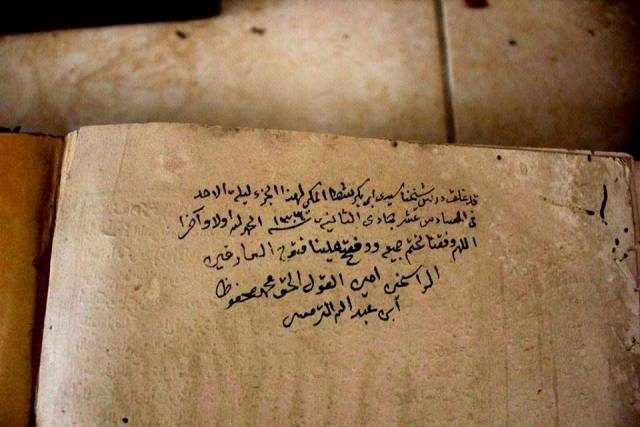 قد غلقت درس شيخنا سيدى ابى بكر شطا المكى لهذا الجزء ليلة الاحد
فى السادس عشر جمادى الثانية سنة الحمد لله اولا وآخرا
اللهم وفقنا لختم جميعه وفتح علينا فتوح العارفين
الراسخين امين القول الحق محمد محفوظ
ابن عبد الله الترمسى